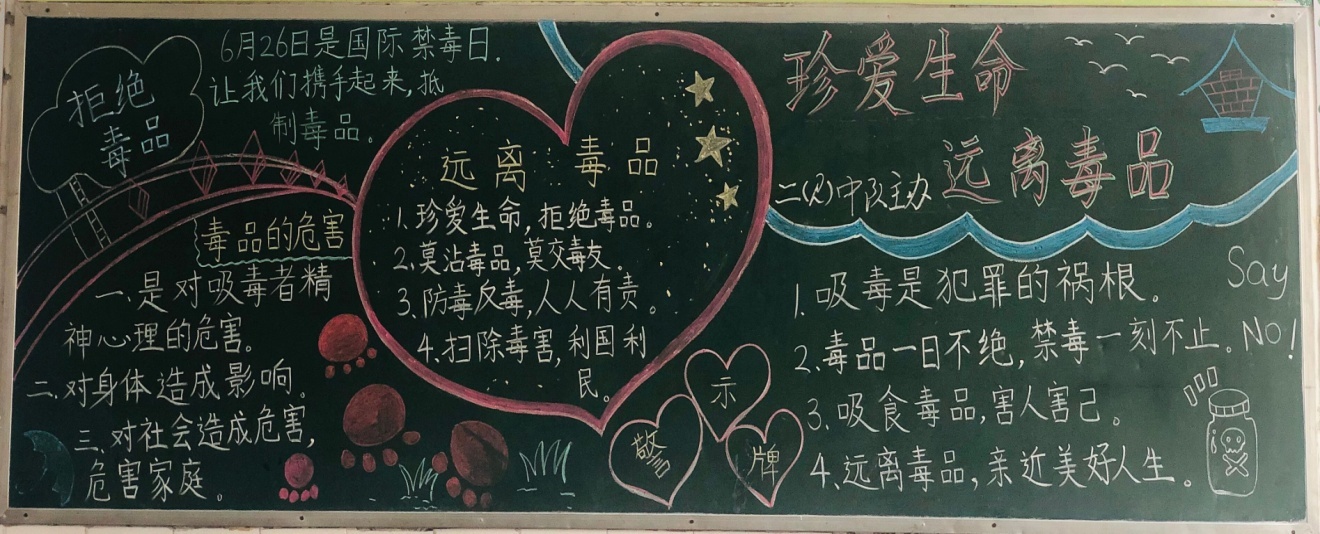 拒绝
毒品
6月26日是国际禁毒日.
让我们携手起来,抵
制毒品。
毒品的危害
一.是对吸毒者精
神心理的危害。
二.对身体造成影响。
三.对社会造成危害,
危害家庭。
远离毒品
1.珍爱生命,拒绝毒品。
2.莫沾毒品,莫交毒友。
3.防毒反毒,人人有责。
4.扫除毒害,利国利
民。
警示牌
珍爱生命
远离毒品
二(2)中队主办
1.吸毒是犯罪的祸根。
2.毒品一日不绝,禁毒一刻不止。
3.吸食毒品,害人害己。
4.远离毒品,亲近美好人生。
Say
No!